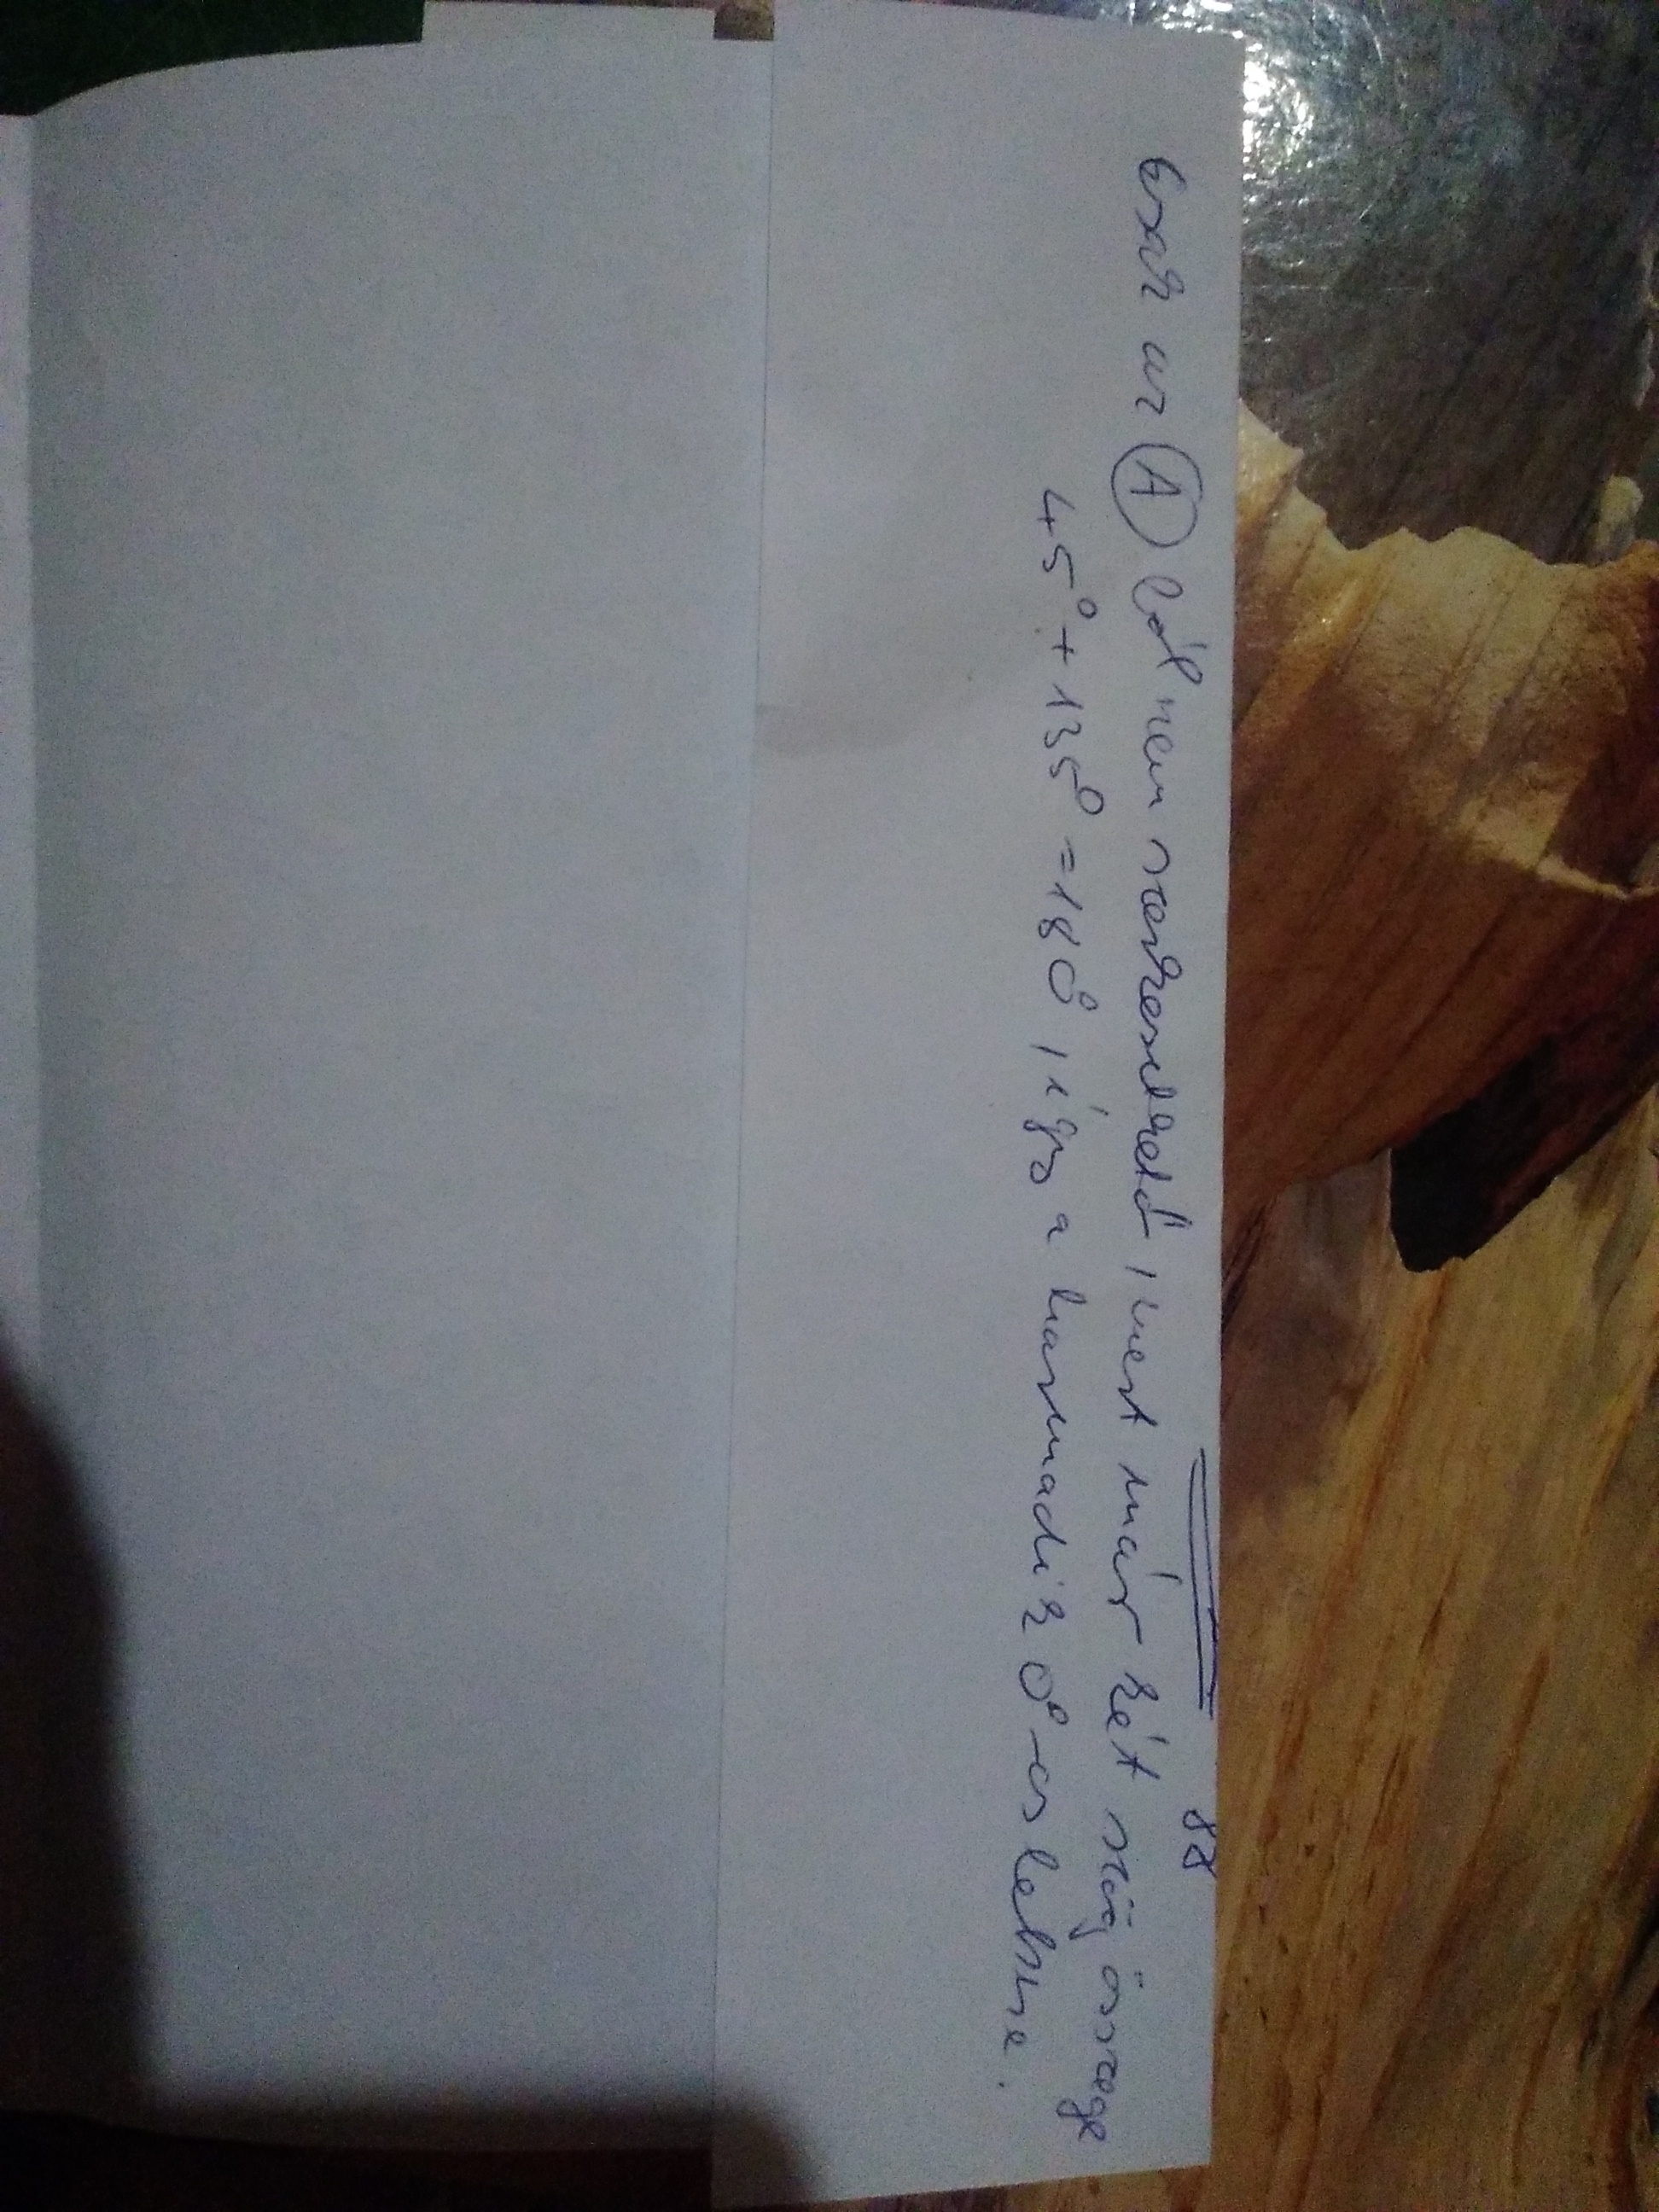 88
csak az A ból nem szerkeszthető, mert már két szög összege
45° + 135° = 180°, így a harmadik 0°-os lenne.